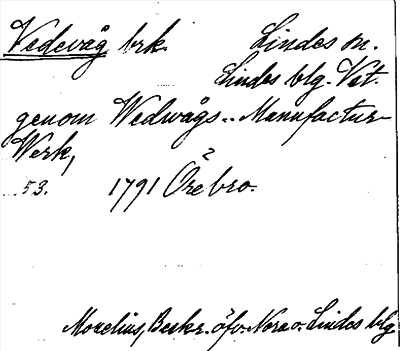 Vedevåg brk. Lindes sn.
Lindes blg. Vst.
genom Wedwågs-Manufactur-
Werk,
53. 1791 Örebro.
2
Morelius, Beskr. öfv. Nora o. Lindes blg